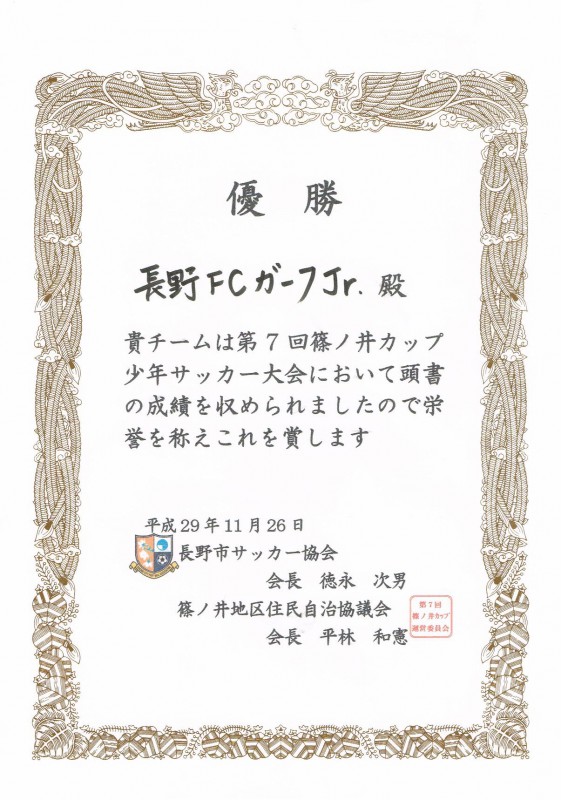 優 勝
長野FCガーフJr. 殿
貴チームは第7回篠ノ井カップ
少年サッカー大会において頭書
の成績を収められましたので栄
誉を称えこれを賞します
平成29年11月26日
長野市サッカー協会
会長 徳永 次男
篠ノ井地区住民自治協議会
会長 平林 和憲
第7回
篠ノ井カップ
運営委員会